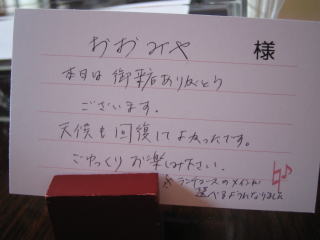 おおみや 様
本日は御来店ありがとう
ございます。
天候も回復してよかったです。
ごゆっくりお楽しみ下さい。
※ランチコースのメインが
選べるようになりました